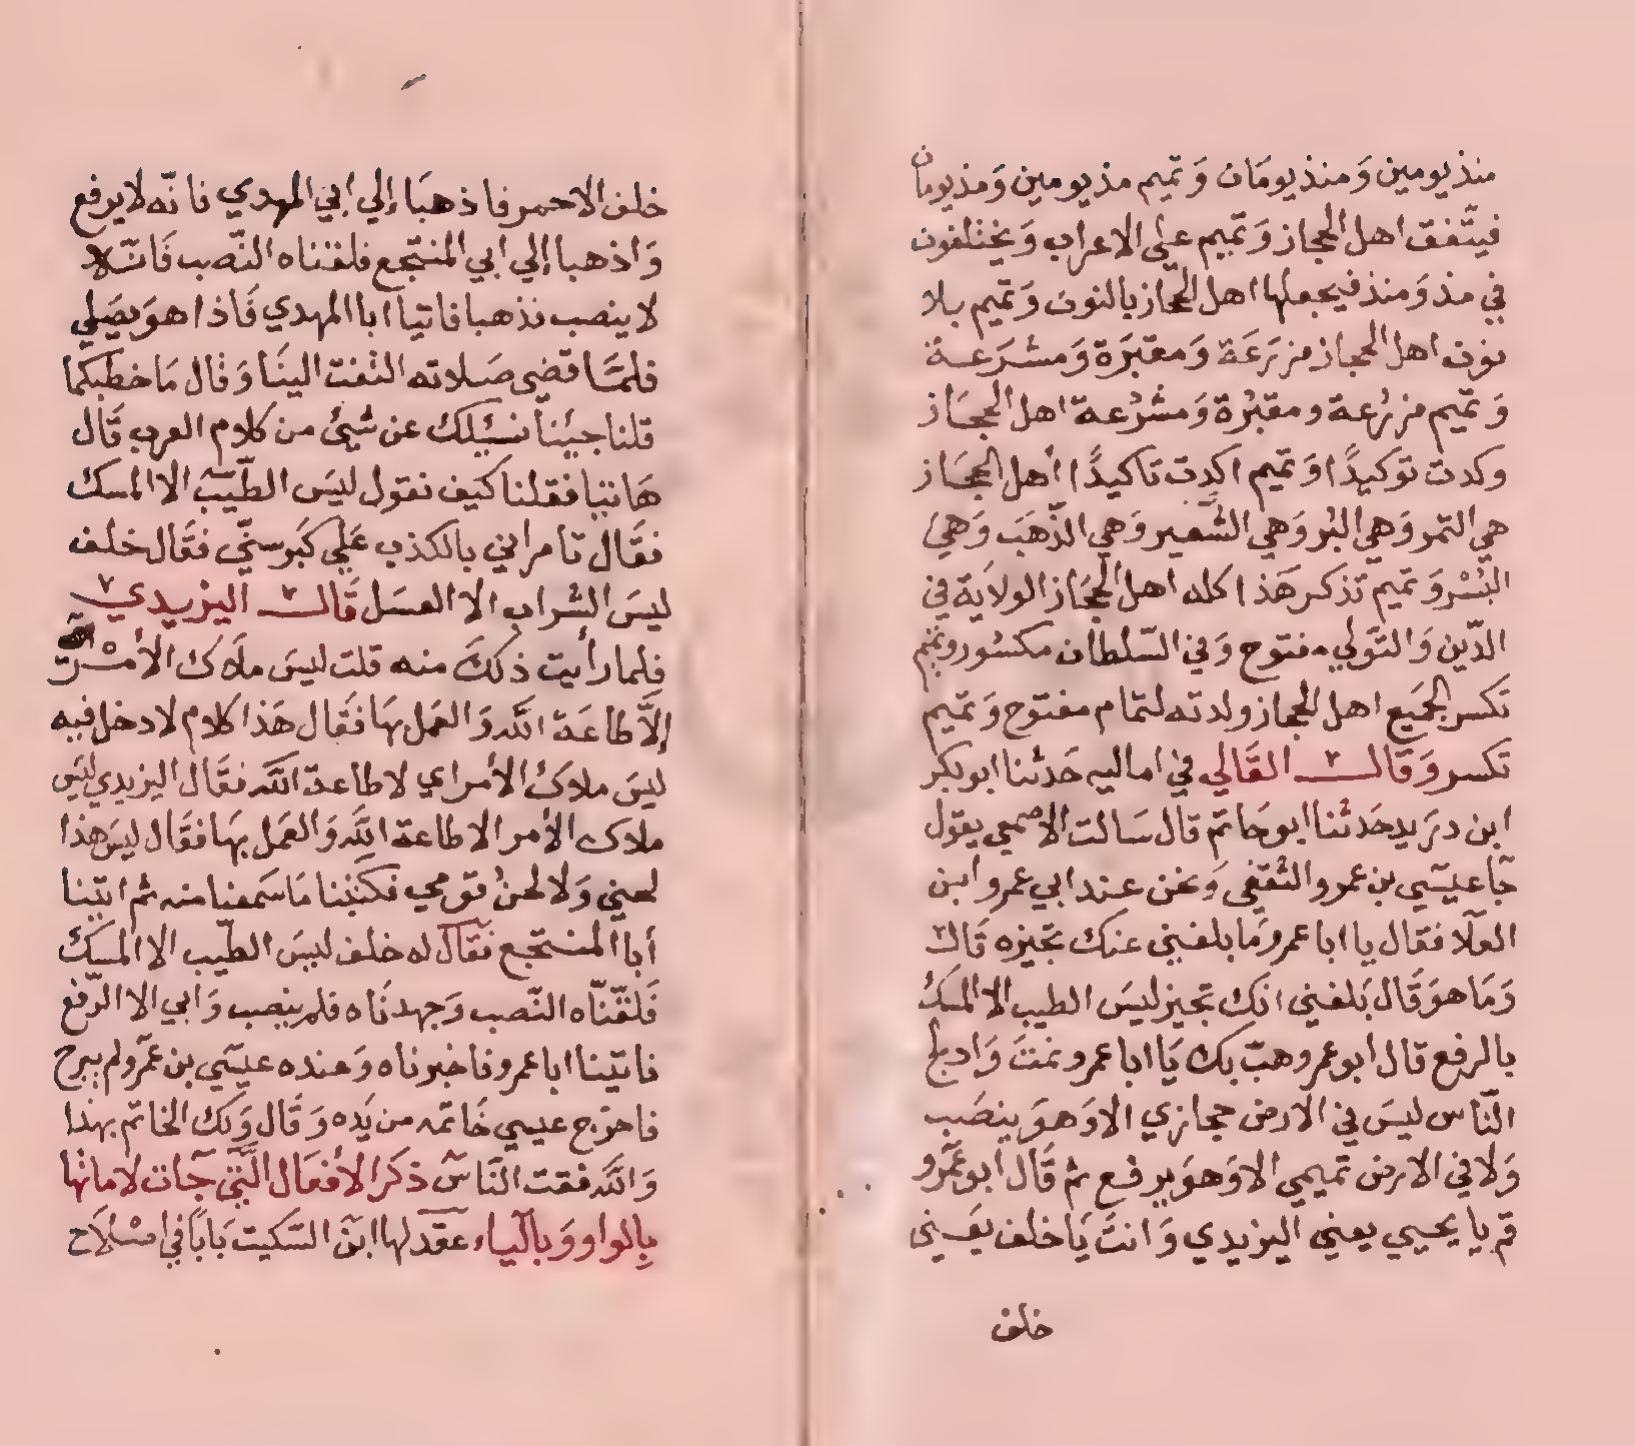 منذ يومين وَمنذ يومَان وَتميم مذ يومين وَمذ يومان
فيتّفق اهل الحجاز وَتميم على الاعراب وَيختلفون
في مذ وَمنذ فيجعلها اهل الحجاز بالنون وَتميم بلا
نون اهل الحجاز مزرَعَة وَمقبَرَة وَمشرَعة
وَتميم مزرُعة ومقبُرة وَمشرُعة اهل الحجَاز
وكدت توكيدًا وَتميم اكدت تاكيدًا أهل الحجَاز
هي التمر وَهي البُر وَهي الشَّعير وَهي الذّهَبَ وَهيَ
البُسْر وَتميم تذكر هَذا كله اهل الحجَاز الولاَية في
الدّين وَالتّولي مفتوح وَفي السّلطان مكسُور وتميم
تكسر الجَميع اهل الحجاز ولدته لتمام مفتوح وَتميم
تكسر وَقَال القَالي في اماليه حَدثنا ابو بكر
ابن دريد حَدثنا ابو حَاتم قال سَالت الاصمعي يقول
جآ عيسَي بن عمرو الثقفي وَنحن عند ابي عمرو ابن
العلآ فقال يا ابا عمرو مَا بلغني عنك تجيزه قَال
وَمَا هوَ قَال بَلغني انك تجيز ليسَ الطيب الا المسكُ
بالرفع قال ابو عمرو هبّ بك يَا ابا عمرو نمتَ وَادلج
النّاس ليسَ في الارض حجازي الا وَهوَ ينصَب
وَلا في الارض تميمي الا وَهوَ يرفع ثم قَال ابو عَمرو
قم يا يحيي يعني اليزيدي وَانتَ يَا خلف يَعني
خلف
خلف الاحمر فاذهبَا إلي ابي المهدي فانّه لا يرفع
وَاذهبا إلي ابي المنتجع فلقناه النّصب فَانّه لا
لا ينصب فذهبا فاتيا ابا المهدي فَاذا هوَ يصَلي
فلمّا قضي صَلاته التفت الينَا وَقال مَا خطبكما
قلنا جيئنا نسئلك عن شيئ من كلام العرب قَال
هَاتيا فقلنا كيَف نقول ليسَ الطّيب الا المسك
فقَال تامراني بالكذب عَلي كَبر سنّي فقَال خلف
ليسَ الشراب الا العسَل قَال اليزيدي
فلما رأيت ذلكَ منه قلت ليسَ ملاَك الأمْر
إلاّ طاعَة اللّه وَالعمَل بهَا فقَال هَذا كلام لا دخل فيه
ليسَ ملاكُ الأمر اي لا طاعة اللّه فقَال اليزيدي ليسَ
ملاك الأمر الا طاعة اللّه وَالعمَل بهَا فقَال ليسَ هذا
لحني وَلا لحنُ قومي فكتبنا مَا سَمعنا منه ثم اتينا
أبا المنتجع فقَال له خلف ليسَ الطّيب الا المسَك
فَلقّنّاه النّصب وَجهدنَاه فلم ينصب وَابي الا الرّفع
فاتينا ابا عمرو فاخبرناه وَعنده عيسَي بن عمَرو لم يبرح
فاخرج عيسي خَاتمه من يَده وَقَال وَلك الخاتم بهذا
وَاللّه فقت النّاسَ ذكر الأفعَال الّتي جآت لاماتها
بِالواو وَبالياء عقَد لها ابن السّكيت بَابًا في اصْلاَح